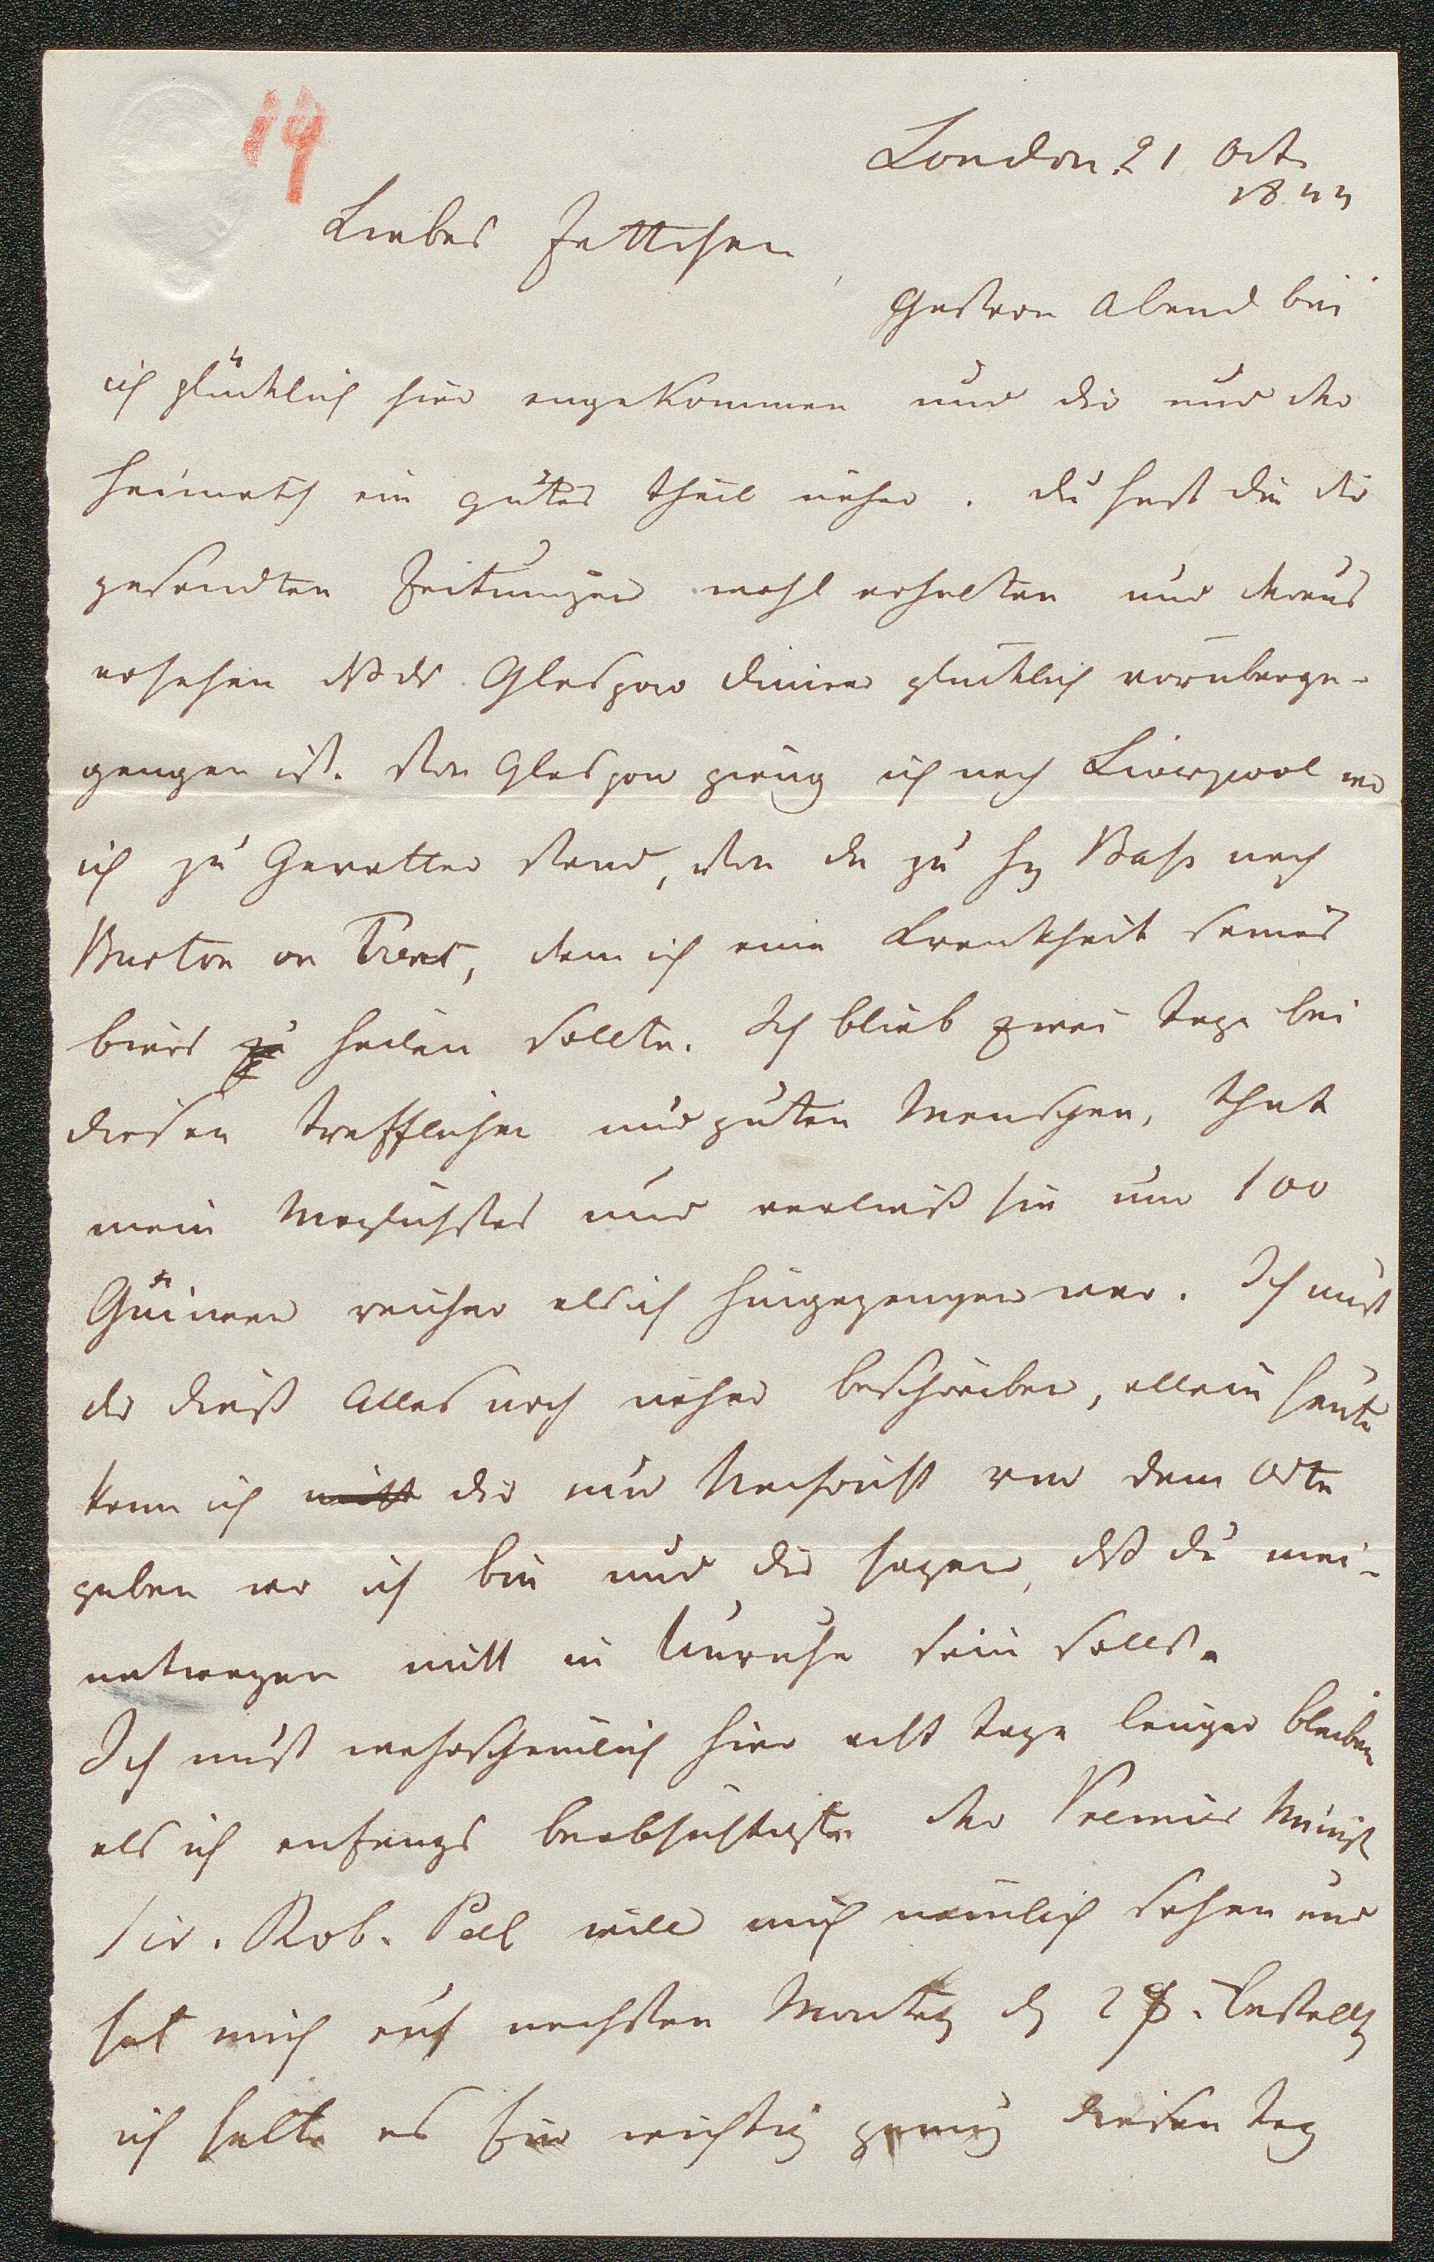 14
London 21 Oct.
1844
Liebes Jettchen
Gestern Abend bin
ich glücklich hier angekommen und dir und der
Heimath ein gutes Theil näher. Du hast die dir
gesandten Zeitungen wohl erhalten und daraus
ersehen dß ds Glasgow Dinner glücklich vorüberge-
gangen ist. Von Glasgow gieng ich nach Liverpool wo
ich zu Gevatter stand, von da zu H Bass nach
Burton on Trent, dem ich eine Krankheit seines
biers zu heilen sollte. Ich blieb zwei Tage bei
diesen trefflichen und guten Menschen, that
mein Möglichstes und verließ sie um 100
Guineen reicher als ich hingegangen war. Ich muß
dir dieß Alles noch näher beschreiben, allein heute
kann ich nicht dir nur Nachricht von dem Orte
geben wo ich bin und dir sagen, dß du mei-
netwegen nicht in Unruhe sein sollst.
Ich muß wahrscheinlich hier acht Tage länger bleiben
als ich anfangs beabsichtigte der Premier Minist
Sir. Rob. Peel will mich nämlich sehen und
hat mich auf nächsten Montag d 28. bestellt
ich halte es für wichtig genug diesen Tag